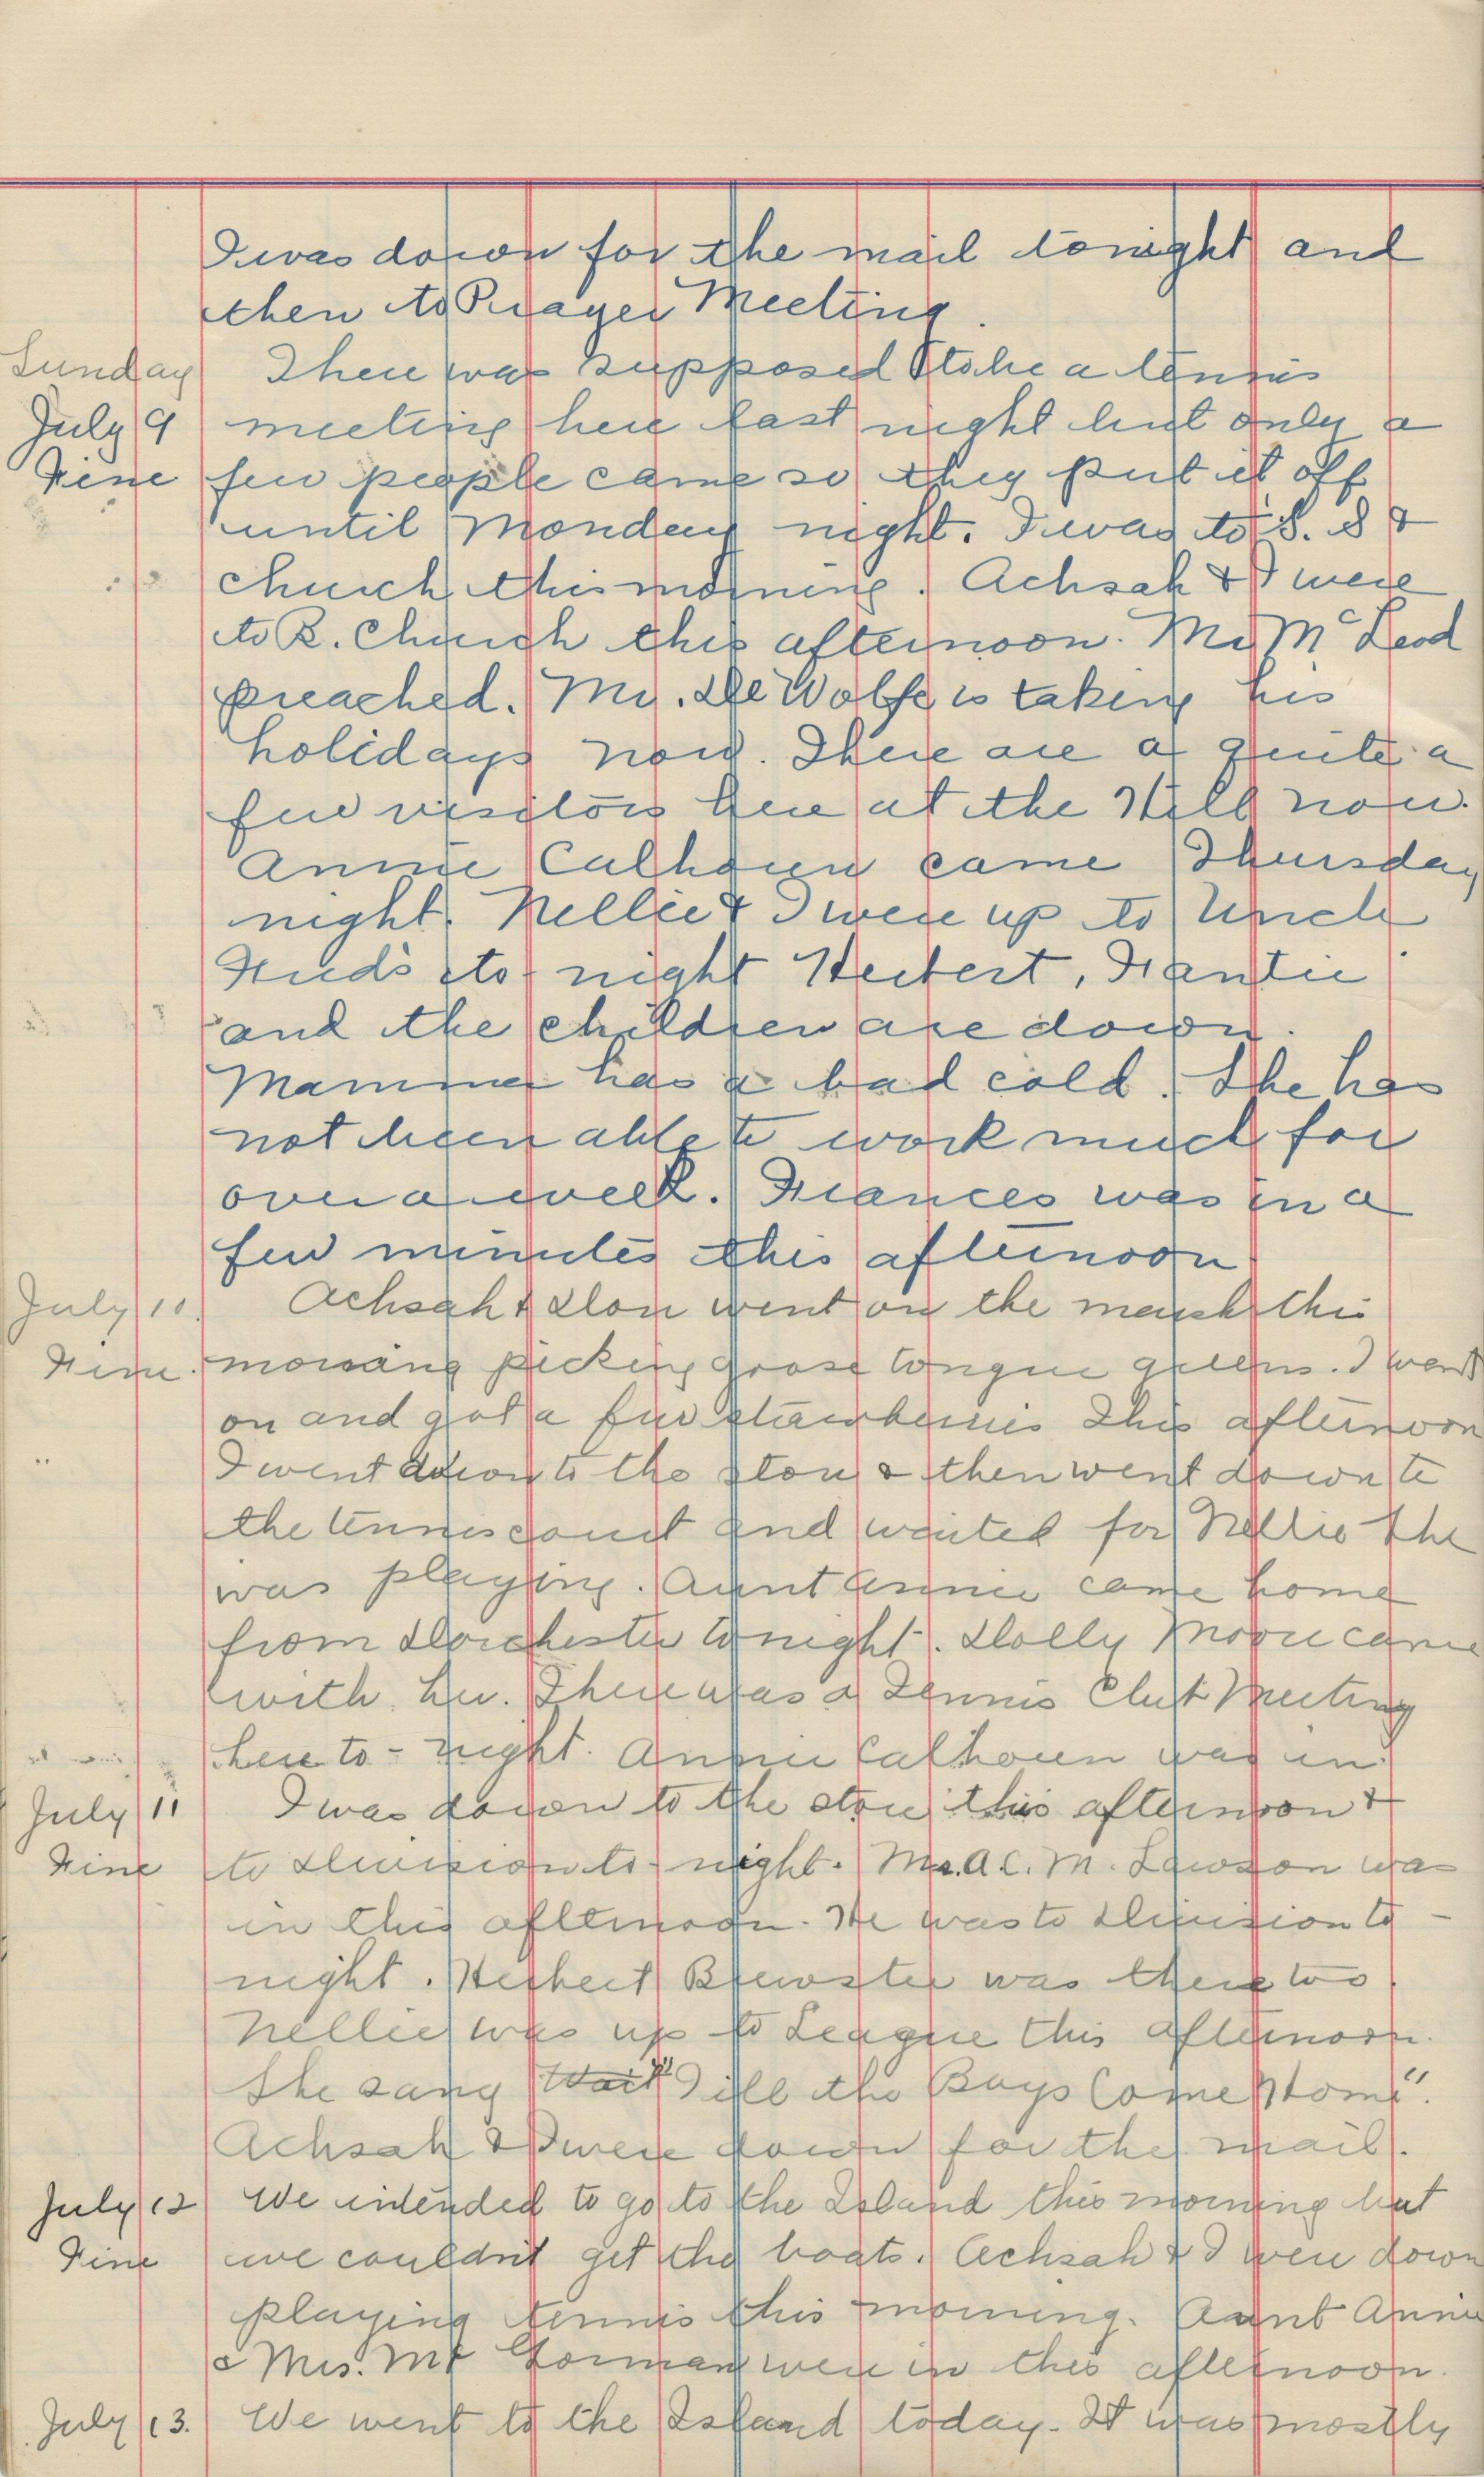 I was down for the mail tonight and
then to Prayer Meeting.
Sunday There was supposed to be a tennis
July 9 meeting here last night but only a
Fine few people came so they put it off
until Monday night. I was to S. S &
church this morning. Achsah & I were
to B. Church this afternoon. Mr McLeod
preached. Mr. De Wolfe is taking his
holidays now. There are a quite a
few visitors here at the Hill now.
Annie Calhoun came Thursday
night. Nellie & I were up to Uncle
Fred's to-night Herbert, Frantie
and the children are down.
Mamma has a bad cold. She has
not been able to work much for
over a week. Frances was in a
few minutes this afternoon
July 10. Achsah & Don went on the marsh this
Fine. morning picking goose tongue greens. I went
on and got a few strawberries This afternoon
I went down to the store & then went down to
the tennis court and waited for Nellie She
was playing. Aunt Annie came home
from Dorchester tonight. Dolly Moore came
with her. There was a Tennis Club Meeting
here to-night. Annie Calhoun was in.
July 11 I was down to the store this afternoon &
Fine to Division to-night. Mr. A. C. M. Lawson was
in this afternoon. He was to Division to-
night. Herbert Brewster was there too.
Nellie was up to League this afternoon.
She sang Wait "Till the Boys Come Home".
Achsah & I were down for the mail.
July 12 We intended to go to the Island this morning but
Fine we couldn't get the boats. Achsah & I were down
playing tennis this morning. Aunt Annie
& Mrs. Mc Gorman were in this afternoon.
July 13. We went to the Island today. It was mostly